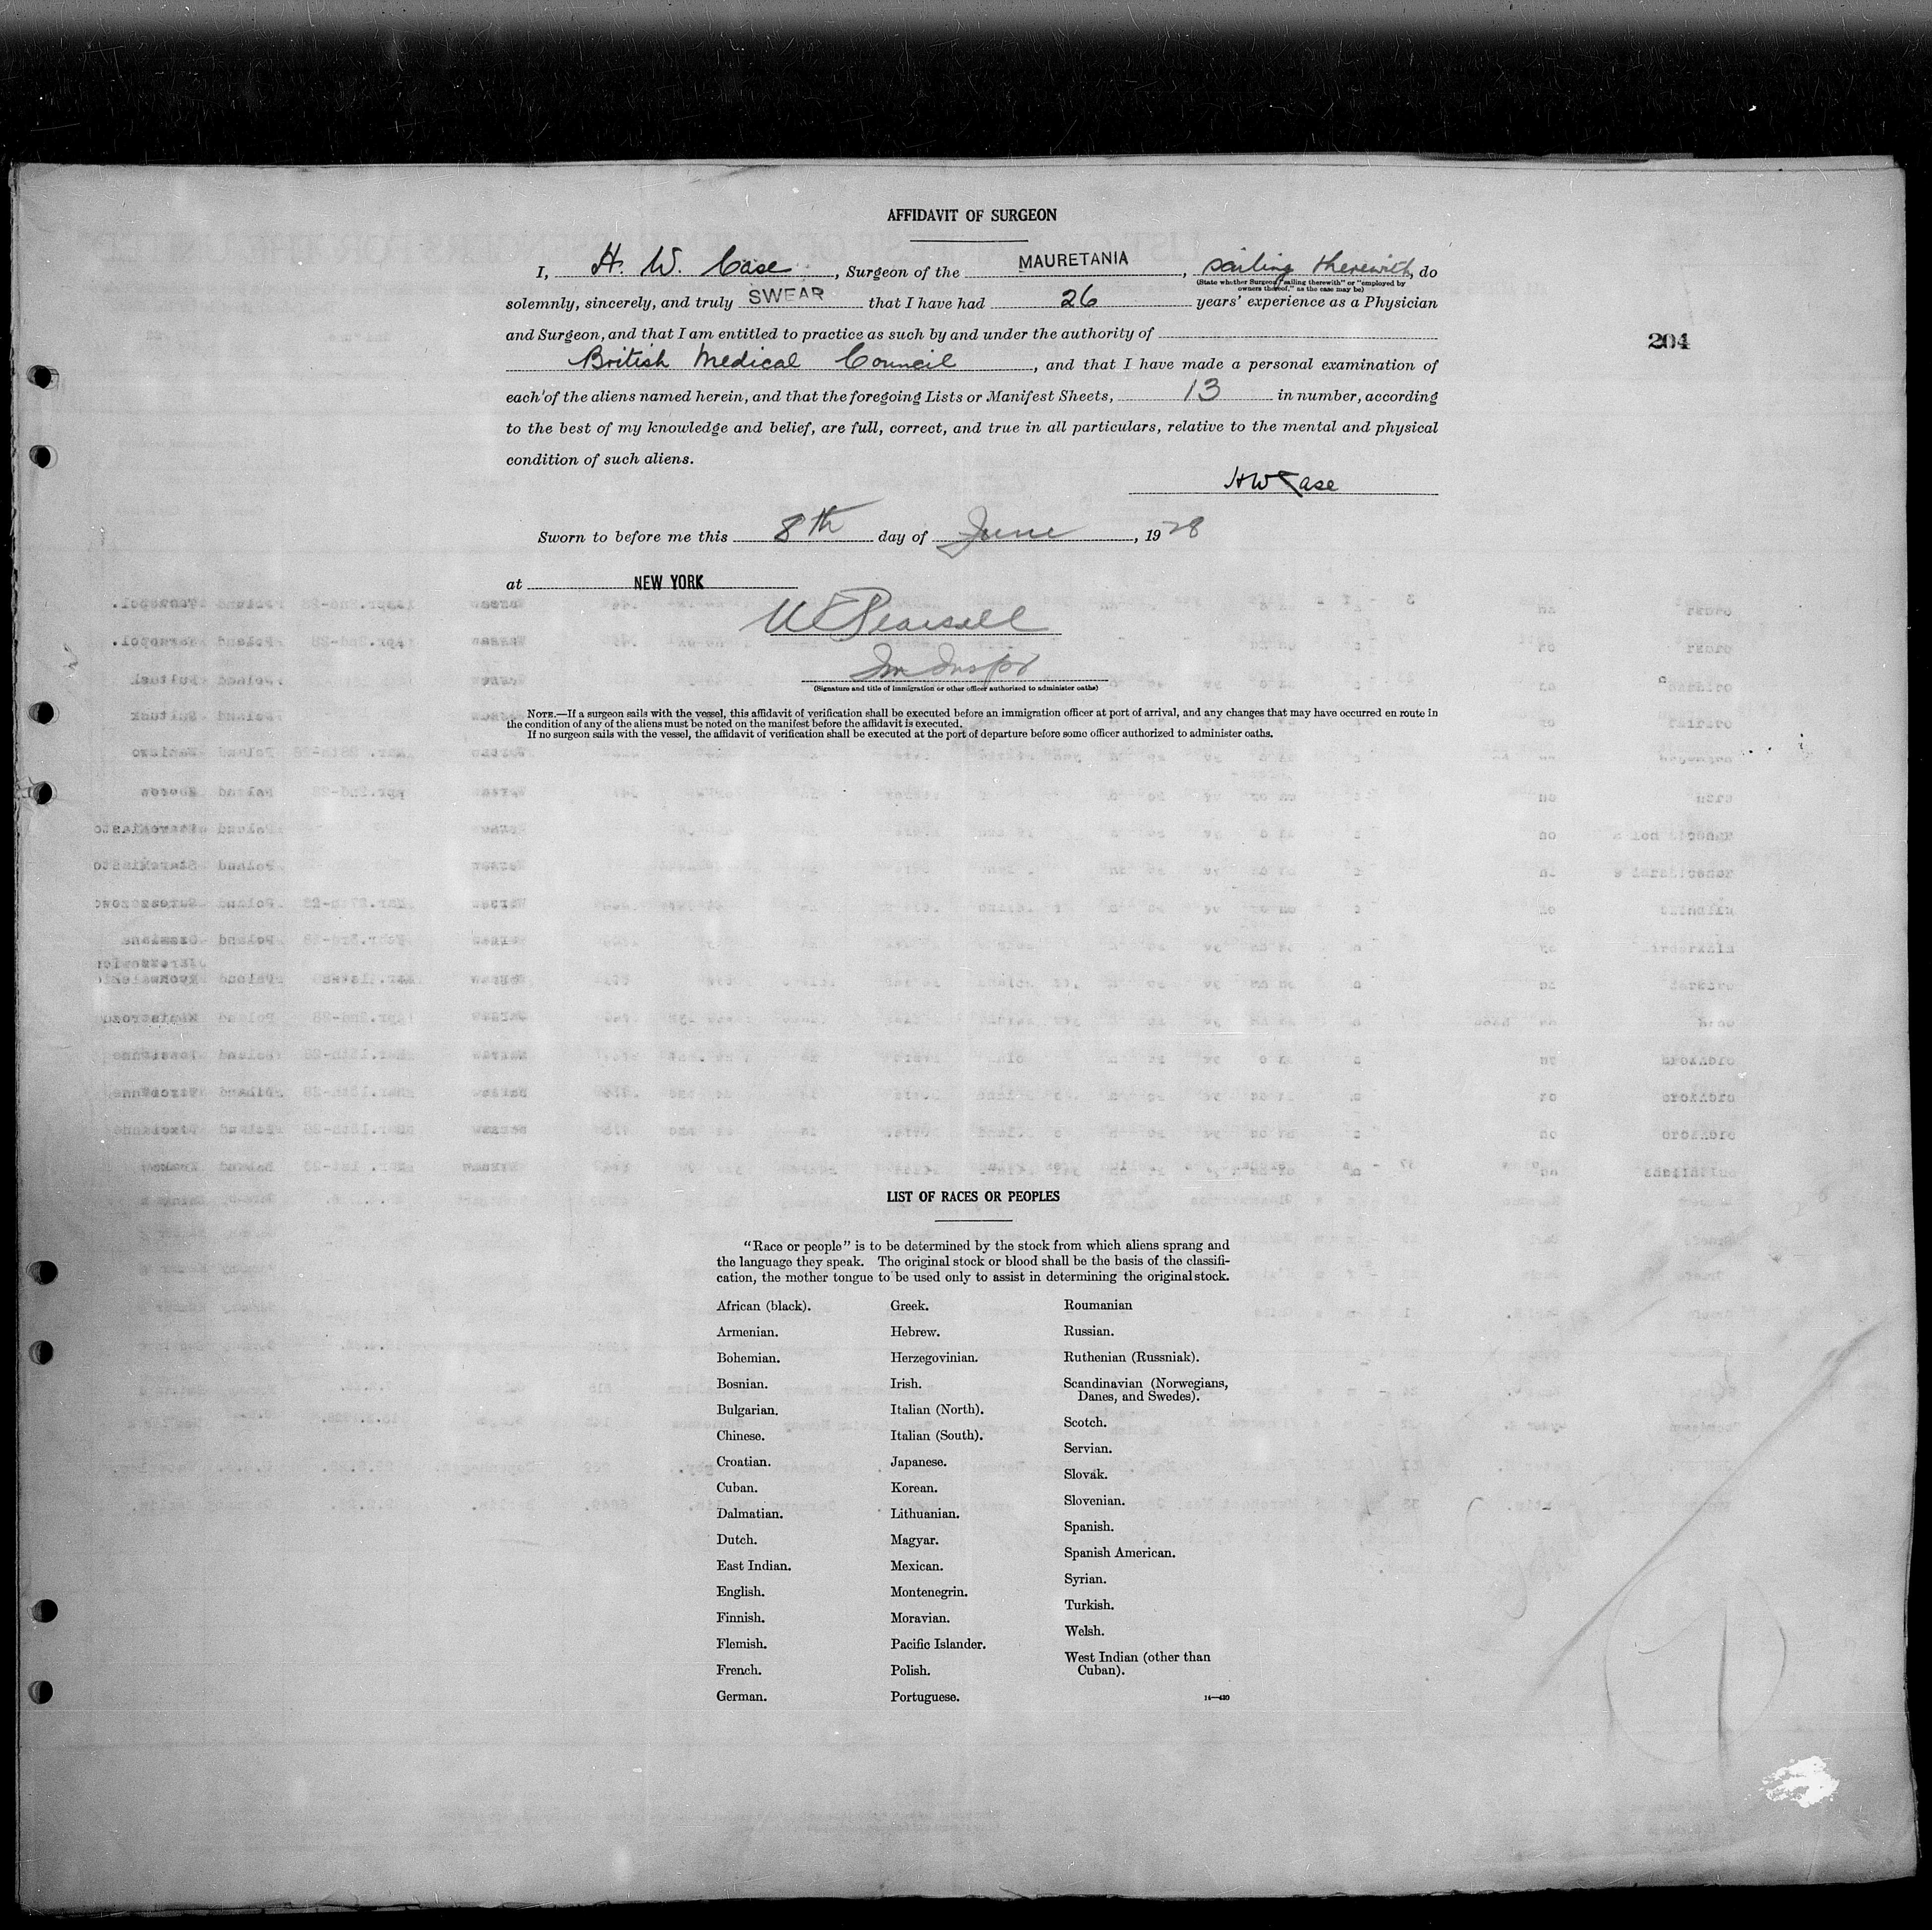 AFFIDAVIT OF SURGEON
I, H. W. Case, Surgeon of the MAURETANIA, sailing therewith, do
(State whether Surgeon "sailing therewith" or "employed by
owners thereof," as the case may be)
solemnly, sincerely, and truly SWEAR that I have had 26 years' experience as a Physician
and Surgeon, and that I am entitled to practice as such by and under the authority of
204
British Medical Council, and that I have made a personal examination of
each of the aliens named herein, and that the foregoing Lists or Manifest Sheets, 13 in number, according
to the best of my knowledge and belief, are full, correct, and true in all particulars, relative to the mental and physical
condition of such aliens.
HW Case
Sworn to before me this 8th day of June, 1928
at NEW YORK
Pearsall
Im Inspr
(Signature and title of immigration or other officer authorized to administer oaths)
NOTE.—If a surgeon sails with the vessel, this affidavit of verification shall be executed before an immigration officer at port of arrival, and any changes that may have occurred en route in
the condition of any of the aliens must be noted on the manifest before the affidavit is executed.
If no surgeon sails with the vessel, the affidavit of verification shall be executed at the port of departure before some officer authorized to administer oaths.
LIST OF RACES OR PEOPLES
"Race or people" is to be determined by the stock from which aliens sprang and
the language they speak. The original stock or blood shall be the basis of the classifi-
cation, the mother tongue to be used only to assist in determining the original stock.
African (black).
Armenian.
Bohemian.
Bosnian.
Bulgarian.
Chinese.
Croatian.
Cuban.
Dalmatian.
Dutch.
East Indian.
English.
Finnish.
Flemish.
French.
German.
Greek.
Hebrew.
Herzegovinian.
Irish.
Italian (North).
Italian (South).
Japanese.
Korean.
Lithuanian.
Magyar.
Mexican.
Montenegrin.
Moravian.
Pacific Islander.
Polish.
Portuguese.
Roumanian
Russian.
Ruthenian (Russniak).
Scandinavian (Norwegians,
Danes, and Swedes).
Scotch.
Servian.
Slovak.
Slovenian.
Spanish.
Spanish American.
Syrian.
Turkish.
Welsh.
West Indian (other than
Cuban).
14—420